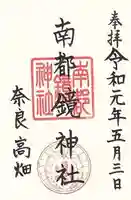 奉拝
令和元年五月三日
南都鏡神社
奈良高畑
南都
鏡
神社